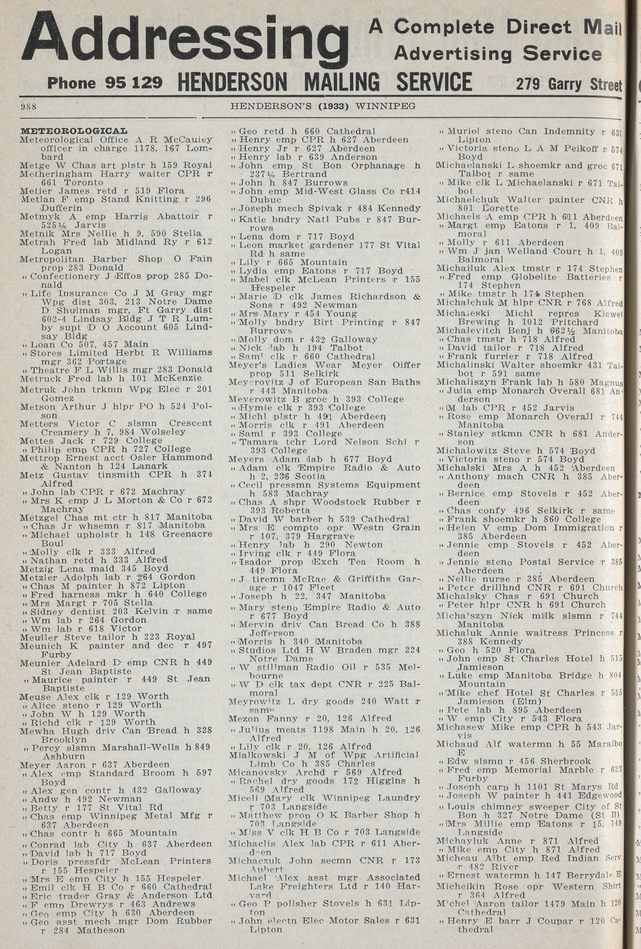 Addressing
A Complete Direct Mail
Advertising Service
Phone 95 129 HENDERSON MAILING SERVICE 279 Garry Street
988 HENDERSON'S (1933) WINNIPEG
METEOROLOGICAL
Meteorological Office A R McCauley
officer in charge 1178, 167 Lom-
bard
Metge W Chas art plstr h 159 Royal
Metheringham Harry waiter CPR r
661 Toronto
Metier James retd r 519 Flora
Metlan F emp Stand Knitting r 296
Dufferin
Metmyk A emp Harris Abattoir r
525½ Jarvis
Metnik Mrs Nellie h 9, 590 Stella
Metrah Fred lab Midland Ry r 612
Logan
Metropolitan Barber Shop O Fain
prop 283 Donald
„ Confectionery J Effos prop 285 Do-
nald
„ Life Insurance Co J M Gray mgr
Wpg dist 303, 213 Notre Dame
D Shulman mgr, Ft Garry dist
602-4 Lindsay Bldg J T R Lum-
by supt D O Account 605 Lind-
say Bldg
„ Loan Co 507, 457 Main
„ Stores Limited Herbt R Williams
mgr 362 Portage
„ Theatre F L Willis mgr 283 Donald
Metruck Fred lab h 101 McKenzie
Metruk John trkmn Wpg Elec r 201
Gomez
Metson Arthur J hlpr PO h 524 Pol-
son
Metters Victor C slsmn Crescent
Creamery h 7, 984 Wolseley
Mettes Jack r 729 College
„ Philip emp CPR h 727 College
Mettrop Ernest acct Osler Hammond
& Nanton h 124 Lanark
Metz Gustav tinsmith CPR h 374
Alfred
„ John lab CPR r 672 Machray
„ Mrs K emp J L Morton & Co r 672
Machray
Metzgel Chas mt ctr h 817 Manitoba
„ Chas Jr whsemn r 817 Manitoba
„ Michael upholstr h 148 Greenacre
Boul
„ Molly clk r 333 Alfred
„ Nathan retd h 333 Alfred
Metzig Lena maid 345 Boyd
Metzler Adolph lab r 264 Gordon
„ Chas M painter h 872 Lipton
„ Fred harness mkr h 640 College
„ Mrs Margt r 705 Stella
„ Sidney dentist 203 Kelvin r same
„ Wm lab r 264 Gordon
„ Wm lab r 618 Victor
Meuller Steve tailor h 223 Royal
Meunich K painter and dec r 497
Furby
Meunier Adelard D emp CNR h 449
St Jean Baptiste
„ Maurice painter r 449 St Jean
Baptiste
Meuse Alex clk r 129 Worth
„ Alice steno r 129 Worth
„ John W h 129 Worth
„ Richd clk r 129 Worth
Mewha Hugh driv Can Bread h 328
Brooklyn
„ Percy slsmn Marshall-Wells h 849
Ashburn
Meyer Aaron r 637 Aberdeen
„ Alex emp Standard Broom h 597
Boyd
„ Alex gen contr h 432 Galloway
„ Andw h 492 Newman
„ Betty r 177 St Vital Rd
„ Chas emp Winnipeg Metal Mfg r
637 Aberdeen
„ Chas contr h 665 Mountain
„ Conrad lab City h 637 Aberdeen
„ David lab h 717 Boyd
„ Doris pressfdr McLean Printers
r 155 Hespeler
„ Mrs E emp City h 155 Hespeler
„ Emil clk H B Co r 660 Cathedral
„ Eric trader Gray & Anderson Ltd
„ F emp Drewrys r 463 Andrews
„ Geo emp City h 630 Aberdeen
„ Geo asst mech mgr Dom Rubber
r 284 Matheson
„ Geo retd h 660 Cathedral
„ Henry emp CPR h 627 Aberdeen
„ Henry Jr r 627 Aberdeen
„ Henry lab r 639 Anderson
„ John emp St Bon Orphanage h
237½ Bertrand
„ John h 847 Burrows
„ John emp Mid-West Glass Co r414
Dubuc
„ Joseph mech Spivak r 484 Kennedy
„ Katie bndry Natl Pubs r 847 Bur-
rows
„ Lena dom r 717 Boyd
„ Leon market gardener 177 St Vital
Rd h same
„ Lily r 665 Mountain
„ Lydia emp Eatons r 717 Boyd
„ Mabel clk McLean Printers r 155
Hespeler
„ Marie D clk James Richardson &
Sons r 492 Newman
„ Mrs Mary r 454 Young
„ Molly bndry Birt Printing r 847
Burrows
„ Molly dom r 432 Galloway
„ Nick lab h 194 Talbot
„ Saml clk r 660 Cathedral
Meyer's Ladies Wear Meyer Oiffer
prop 511 Selkirk
Meyerovitz J of European San Baths
r 443 Manitoba
Meyerowitz B groc h 393 College
„ Hymie clk r 393 College
„ Michl plstr h 491 Aberdeen
„ Morris clk r 491 Aberdeen
„ Saml r 393 College
„ Tamara tchr Lord Nelson Schl r
393 College
Meyers Adam lab h 677 Boyd
„ Adam clk Empire Radio & Auto
h 2, 236 Scotia
„ Cecil pressmn Systems Equipment
h 583 Machray
„ Chas A shpr Woodstock Rubber r
393 Roberta
„ David W barber h 539 Cathedral
„ Mrs E compto opr Westn Grain
r 107, 379 Hargrave
„ Henry lab h 290 Newton
„ Irving clk r 449 Flora
„ Isador prop Exch Tea Room h
449 Flora
„ J tiremn McRae & Griffiths Gar-
age r 1047 Fleet
„ Joseph h 22, 347 Manitoba
„ Mary steno Empire Radio & Auto
r 677 Boyd
„ Mervin driv Can Bread Co h 388
Jefferson
„ Morris h 340 Manitoba
„ Studios Ltd H W Braden mgr 224
Notre Dame
„ W stillman Radio Oil r 535 Mel-
bourne
„ W D clk tax dept CNR r 225 Bal-
moral
Meyrowitz L dry goods 240 Watt r
same
Mezon Fanny r 20, 126 Alfred
„ Julius meats 1198 Main h 20, 126
Alfred
„ Lily clk r 20, 126 Alfred
Mialkowski J M of Wpg Artificial
Limb Co h 385 Charles
Micanovsky Archd r 569 Alfred
„ Rachel dry goods 172 Higgins h
569 Alfred
Miceli Mary clk Winnipeg Laundry
r 703 Langside
„ Matthew prop O K Barber Shop h
703 Langside
„ Miss V clk H B Co r 703 Langside
Michaelis Alex lab CPR r 611 Aber-
deen
Michaczuk John secmn CNR r 173
Aubert
Michael Alex asst mgr Associated
Lake Freighters Ltd r 140 Har-
vard
„ Geo P polisher Stovels h 631 Lip-
ton
„ John electn Elec Motor Sales r 631
Lipton
„ Muriel steno Can Indemnity r 631
Lipton
„ Victoria steno L A M Peikoff r 574
Boyd
Michaelanski L shoemkr and groc 671
Talbot r same
„ Mike clk L Michaelanski r 671 Tal-
bot
Michaelchuk Walter painter CNR h
801 Lorette
Michaels A emp CPR h 611 Aberdeen
„ Margt emp Eatons r 1, 409 Bal-
moral
„ Molly r 611 Aberdeen
„ Wm J jan Welland Court h 1, 409
Balmoral
Michailuk Alex tmstr r 174 Stephen
„ Fred emp Globelite Batteries r
174 Stephen
„ Mike tmstr h 174 Stephen
Michalchuk M hlpr CNR r 768 Alfred
Michaleski Michl repres Kiewel
Brewing h 1012 Pritchard
Michalevitch Benj h 662½ Manitoba
„ Chas tmstr h 718 Alfred
„ David tailor r 718 Alfred
„ Frank furrier r 718 Alfred
Michalinski Walter shoemkr 431 Tal-
bot r 591 same
Michaliszyn Frank lab h 580 Magnus
„ Julia emp Monarch Overall 681 An-
derson
„ M lab CPR r 452 Jarvis
„ Rose emp Monarch Overall r 744
Manitoba
„ Stanley stkmn CNR h 681 Ander-
son
Michalowitz Steve h 574 Boyd
„ Victoria steno r 574 Boyd
Michalski Mrs A h 452 Aberdeen
„ Anthony mach CNR h 385 Aber-
deen
„ Bernice emp Stovels r 452 Aber-
deen
„ Chas confy 496 Selkirk r same
„ Frank shoemkr h 860 College
„ Helen V emp Dom Immigration r
385 Aberdeen
„ Jennie emp Stovels r 452 Aber-
deen
„ Jennie steno Postal Service r 385
Aberdeen
„ Nellie nurse r 385 Aberdeen
„ Peter drillhnd CNR r 691 Church
Michalsky Chas r 691 Church
„ Peter hlpr CNR h 691 Church
Michalszyn Nick milk slsmn r 744
Manitoba
Michaluk Annie waitress Princess r
388 Kennedy
„ Geo h 520 Flora
„ John emp St Charles Hotel h 515
Jamieson
„ Luke emp Manitoba Bridge h 804
Mountain
„ Mike chef Hotel St Charles r 515
Jamieson (Elm)
„ Pete lab h 895 Aberdeen
„ W emp City r 543 Flora
Michasew Mike emp CPR h 543 Jar-
vis
Michaud Alf watermn h 55 Maralbo
E
„ Edw slsmn r 456 Sherbrook
„ Fred emp Memorial Marble r 623
Furby
„ Joseph carp h 1101 St Marys Rd
„ Joseph W painter h 441 Edgewood
„ Louis chimney sweeper City of St
Bon h 327 Notre Dame (St B)
„ Mrs Millie emp Eatons r 15, 149
Langside
Michayluk Anne r 871 Alfred
„ Mike emp City h 871 Alfred
Micheau Albt emp Red Indian Serv
r 482 River
„ Ernest watermn h 147 Berrydale E
Micheikin Rose opr Western Shirt
r 364 Alfred
Michel Aaron tailor 1479 Main h 120
Cathedral
„ Henry E barr J Coupar r 120 Ca-
thedral